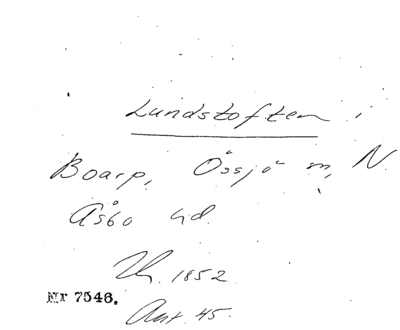 Lundstoften i
Boarp, Össjö sn, N.
Åsbo hd.
Uh. 1852
Nr 7546.
Ant. 45.